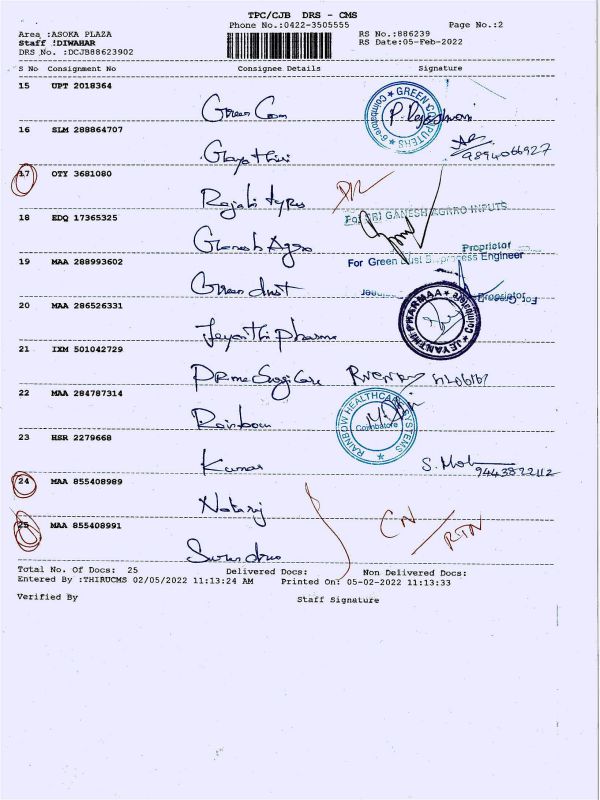 TPC/CJB DRS - CMS
Phone No.:0422-3505555 Page No.:2
Area :ASOKA PLAZA RS No.:886239
Staff :DIWAHAR RS Date:05-Feb-2022
DRS No. :DCJB88623902
S No Consignment No Consignee Details Signature
15 UPT 2018364
Green Com GREEN COMPUTERS Coimbatore-9
16 SLM 288864707
Gayathiri 9894066927
17 OTY 3681080
Rajabi tyres
18 EDQ 17365325 For SRI GANESH AGARO INPUTS
Ganesh Agro Proprietor
19 MAA 288993602 For Green Dust Bioprocess Engineer
Green dust Proprietor
20 MAA 286526331
Jeyanthi pharma JEYANTHI PHARMAA Coimbatore
21 IXM 501042729
Prime Sugi Care
22 MAA 284787314
Rainbow RAINBOW HEALTHCARE SYSTEMS Coimbatore
23 HSR 2279668
Kumar S. Moh 9443822112
24 MAA 855408989
Nataraj CN / RTN
25 MAA 855408991
Total No. Of Docs: 25 Delivered Docs: Non Delivered Docs:
Entered By :THIRUCMS 02/05/2022 11:13:24 AM Printed On: 05-02-2022 11:13:33
Verified By Staff Signature